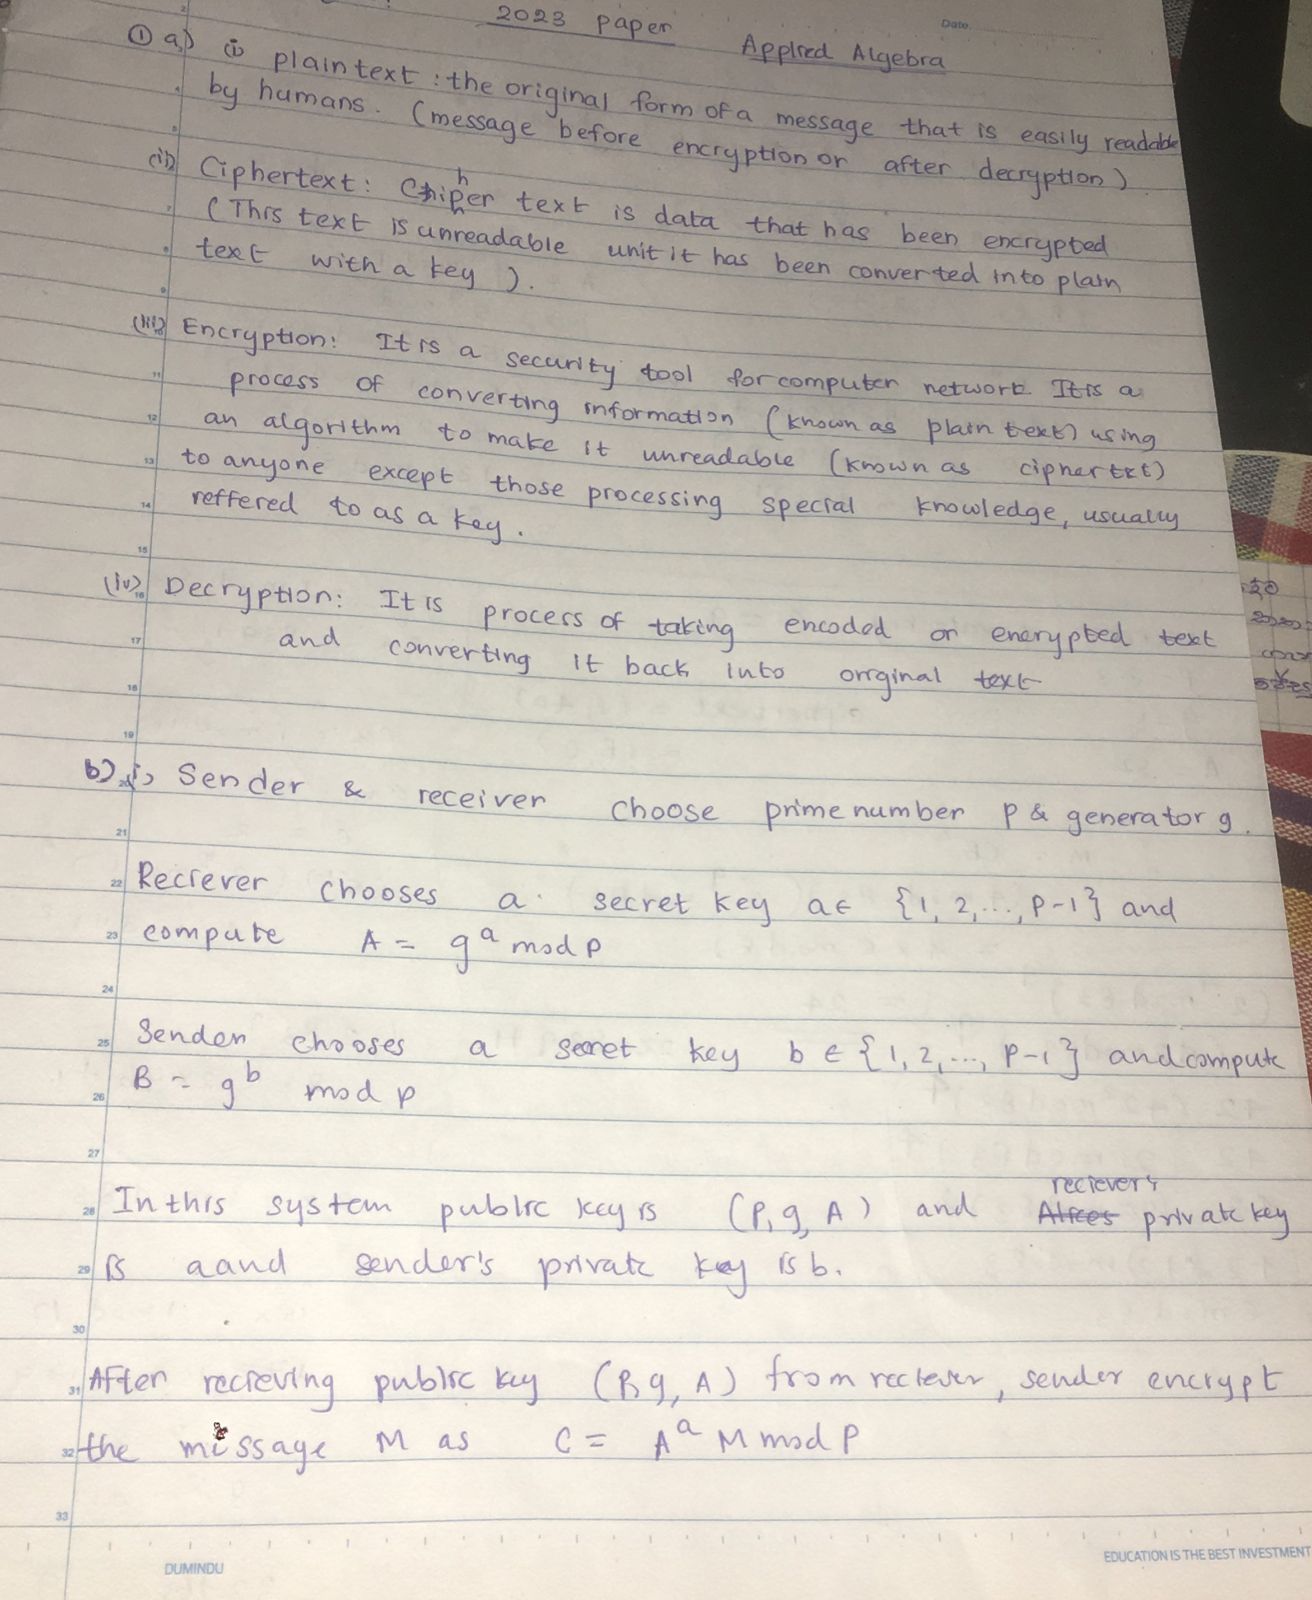 2023 paper
Date
Applied Algebra
① a) (i) plaintext : the original form of a message that is easily readable
by humans. (message before encryption or after decryption)
(ii) Ciphertext: Chiper text is data that has been encrypted
(This text is unreadable unit it has been converted into plain
text with a key ).
(iii) Encryption: It is a security tool for computer network. It is a
process of converting information (known as plain text) using
an algorithm to make it unreadable (known as ciphertxt)
to anyone except those processing special knowledge, usually
reffered to as a key.
(iv) Decryption: It is process of taking encoded or encrypted text
and converting it back into original text
b) i) Sender & receiver choose prime number p & generator g.
Reciever chooses a secret key a ∈ {1, 2, ..., p-1} and
compute A = g^a mod p
Sender chooses a secret key b ∈ {1, 2, ..., p-1} and compute
B = g^b mod p
In this system public key is (p, g, A) and reciever's private key
is a and sender's private key is b.
After recieving public key (p, g, A) from reciever, sender encrypt
the message M as C = A^a M mod p
DUMINDU
EDUCATION IS THE BEST INVESTMENT